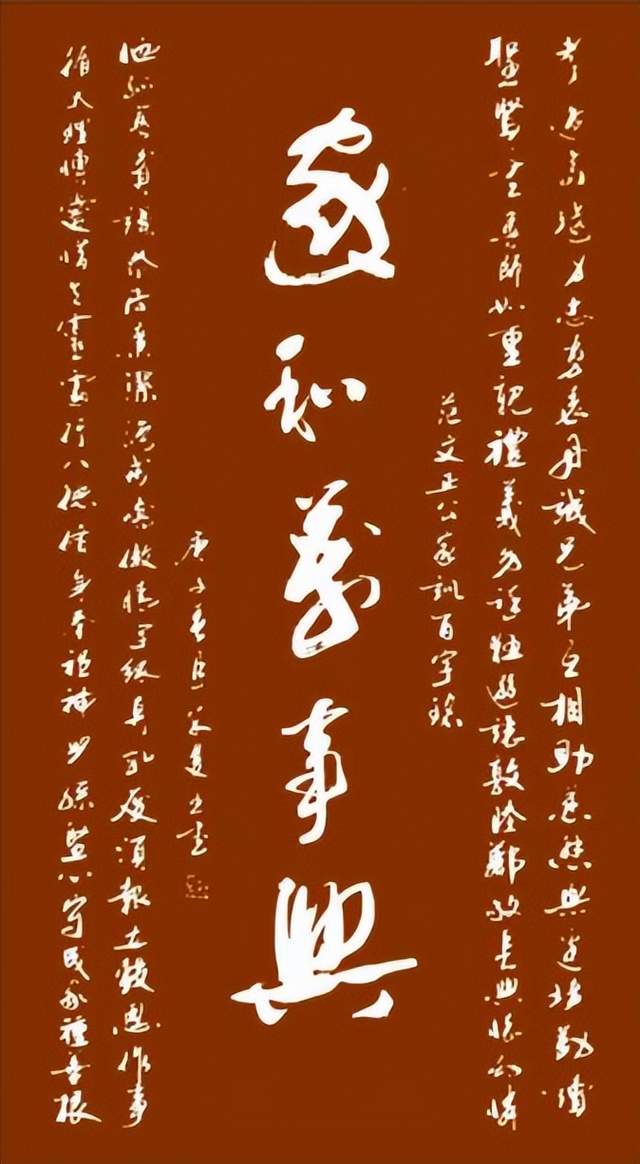 孝道當竭力忠勇表丹誠兄弟互相助慈悲無過境勤讀
聖賢書尊師如重親禮義勿疏狂遜讓敦睦鄰敬長與懷幼憐
范文正公家訓百字銘
家和萬事興
庚子春
恤孤寡貧謙恭尚廉潔絕戒驕傲情字紙莫亂廢須報五穀恩作事
循天理博愛惜生靈處行八德修身奉祖神兒孫堅心守成家種善根